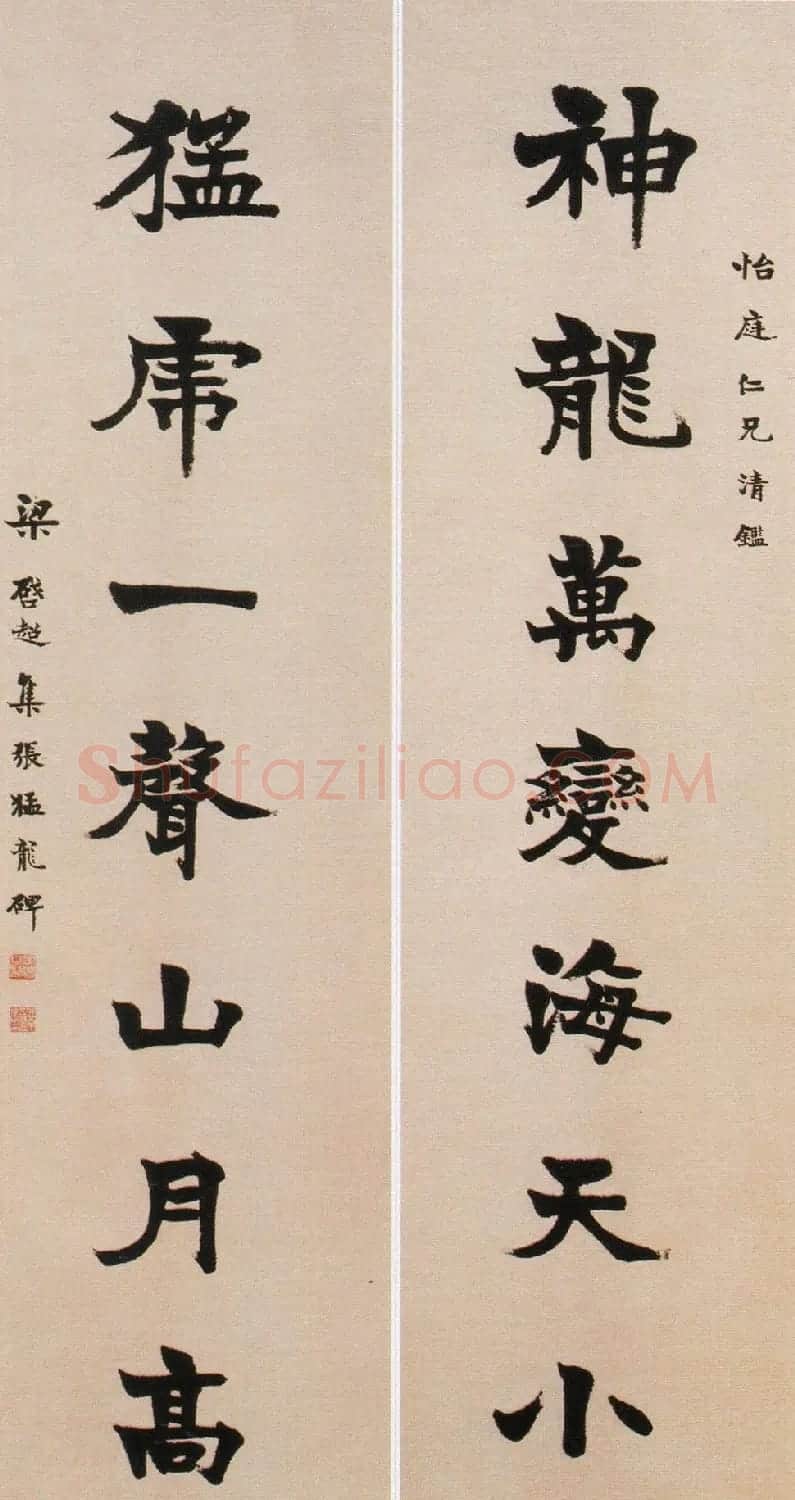 怡庭仁兄清鑑
神龍萬變海天小
猛虎一聲山月高
梁啓超集張猛龍碑
Shufaziliao.COM